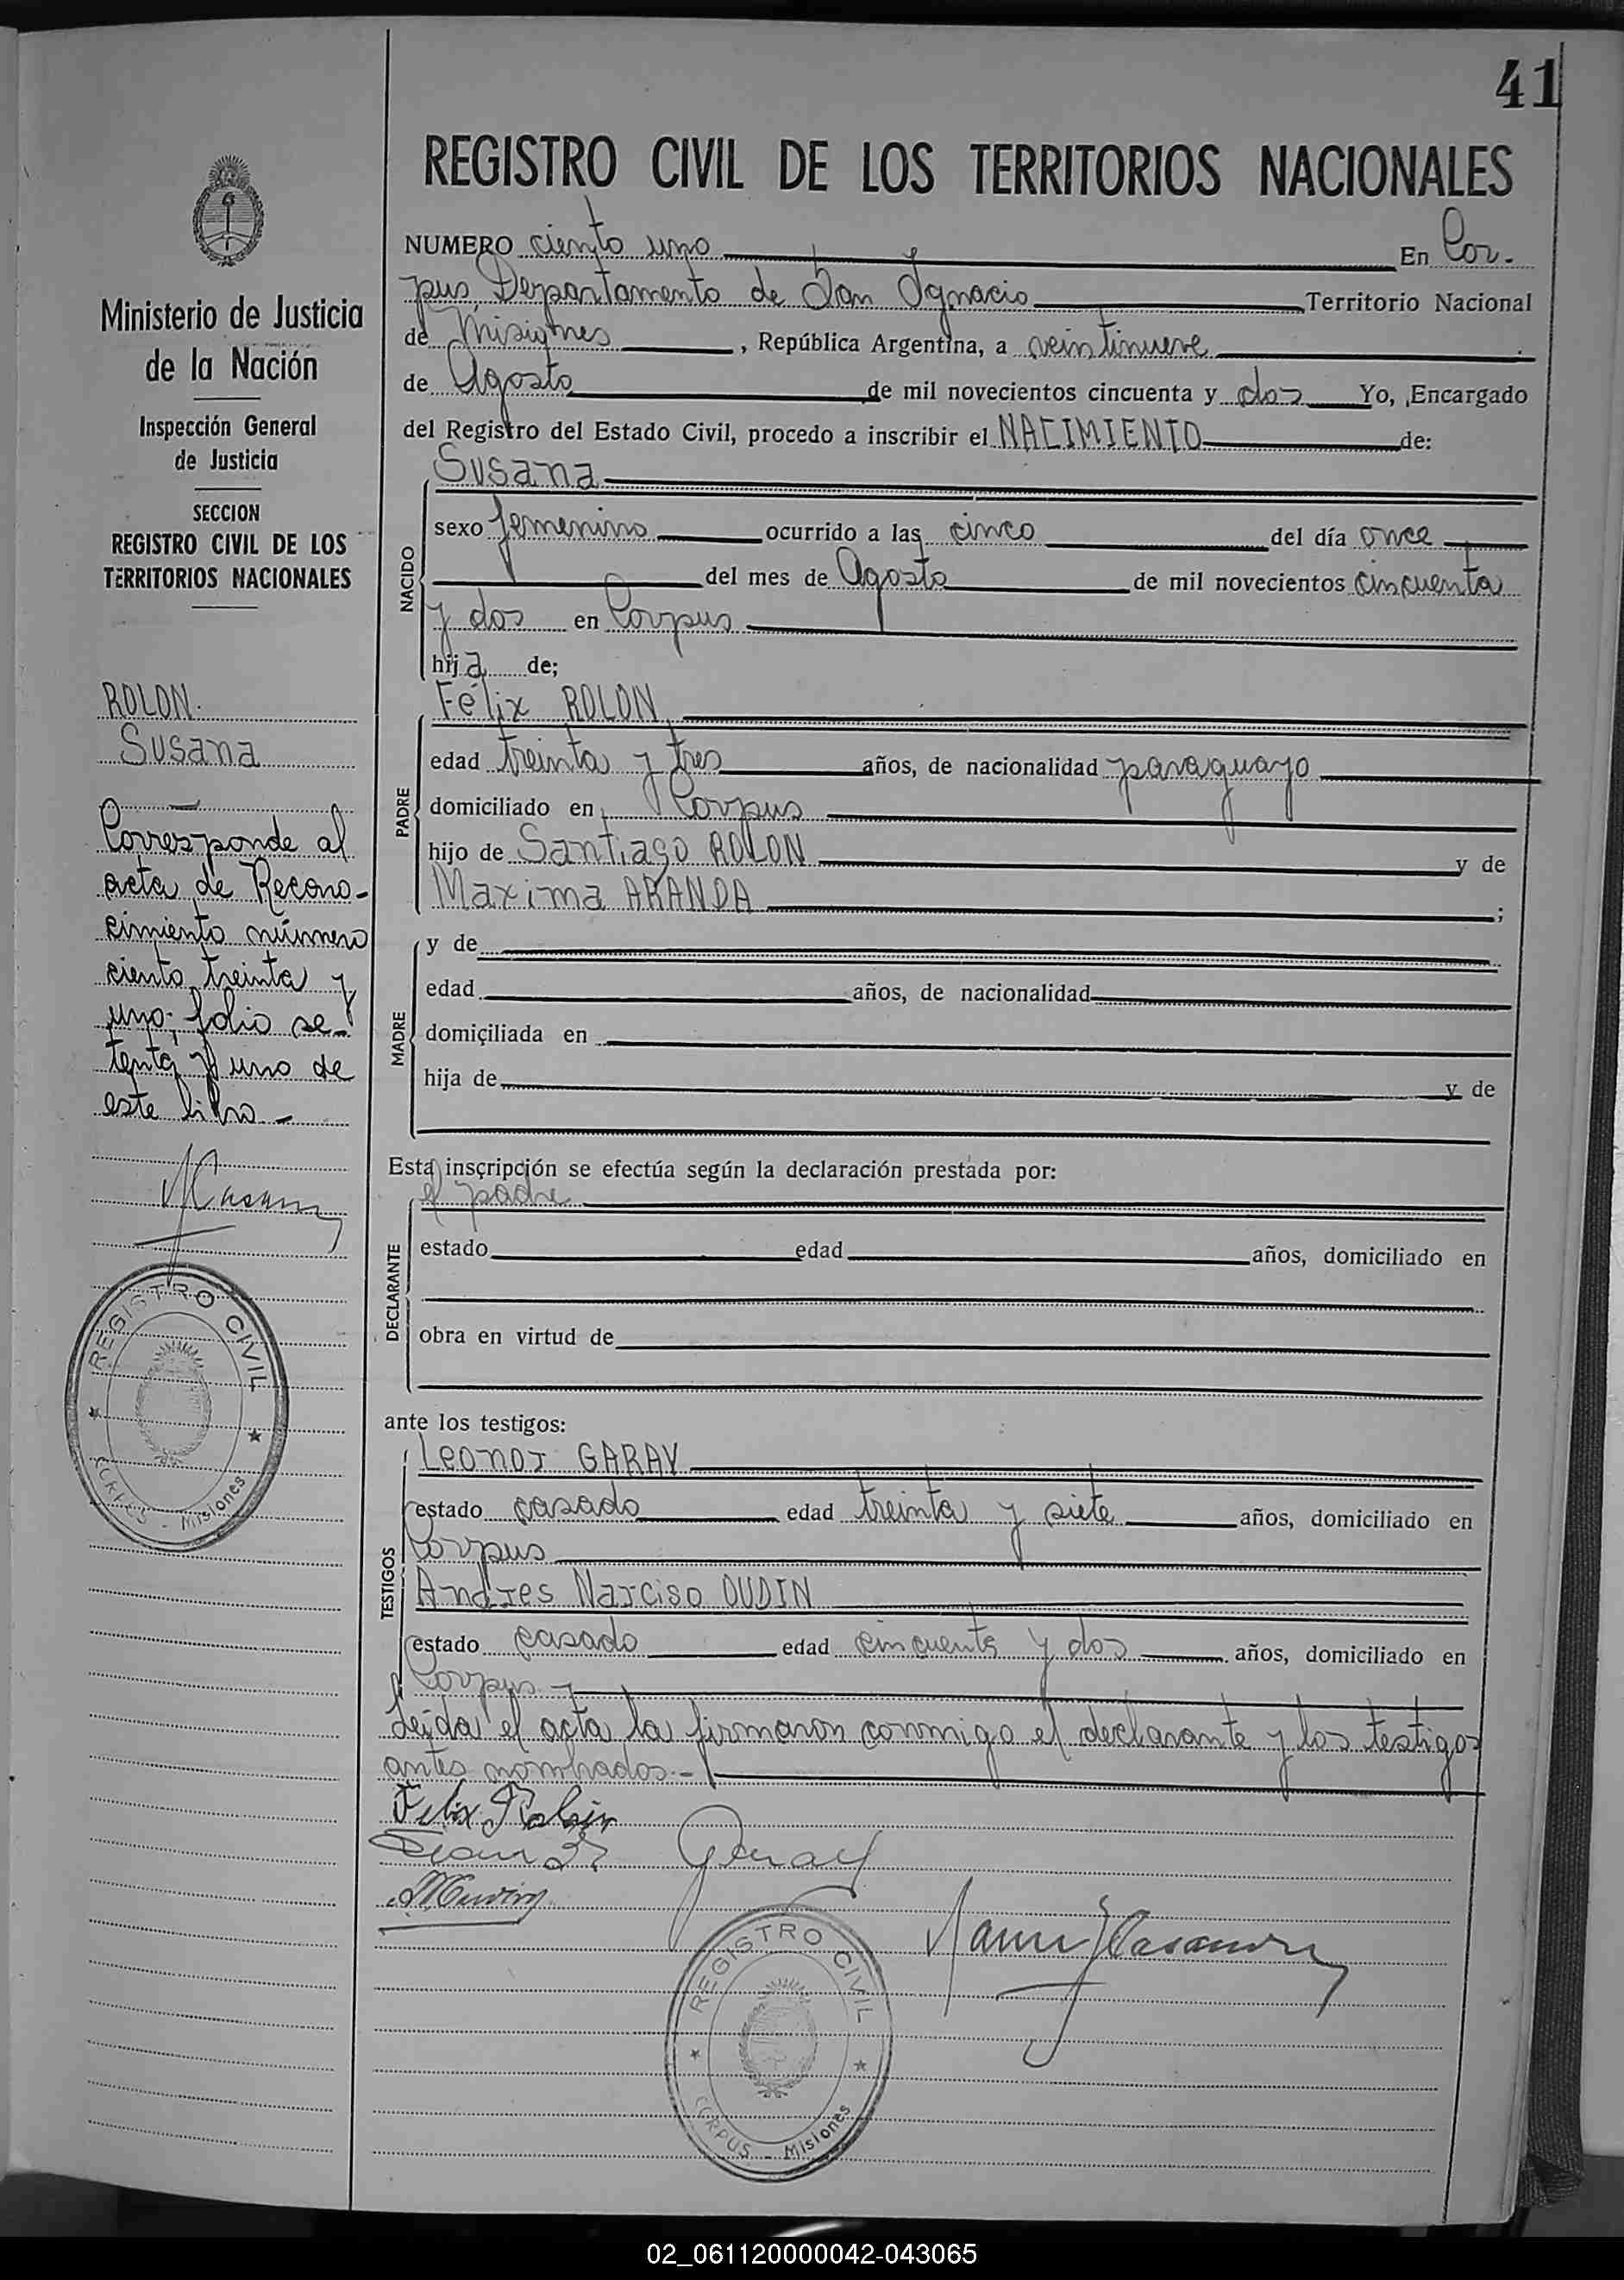 41
REGISTRO CIVIL DE LOS TERRITORIOS NACIONALES
NUMERO ciento uno En Cor-
pus, Departamento de San Ignacio Territorio Nacional
de Misiones, República Argentina, a veintinueve
de Agosto de mil novecientos cincuenta y dos Yo, Encargado
del Registro del Estado Civil, procedo a inscribir el NACIMIENTO de:
Susana
sexo femenino ocurrido a las cinco del día once
del mes de Agosto de mil novecientos cincuenta
y dos en Corpus
hija de;
NACIDO
Félix ROLON
edad treinta y tres años, de nacionalidad paraguayo
domiciliado en Corpus
hijo de Santiago ROLON y de
Maxima ARANDA ;
PADRE
y de
edad años, de nacionalidad
domiciliada en
hija de y de
MADRE
Esta inscripción se efectúa según la declaración prestada por:
el padre
estado edad años, domiciliado en
obra en virtud de
DECLARANTE
ante los testigos:
Leonor GARAY
estado casado edad treinta y siete años, domiciliado en
Corpus
Andres Narciso OUDIN
estado casado edad cincuenta y dos años, domiciliado en
Corpus
TESTIGOS
Leída el acta la firmaron conmigo el declarante y los testigos
antes nombrados.-
Felix Rolon
Garay
REGISTRO CIVIL
CORPUS - Misiones
Ministerio de Justicia
de la Nación
Inspección General
de Justicia
SECCION
REGISTRO CIVIL DE LOS
TERRITORIOS NACIONALES
ROLON.
Susana
Corresponde al
acta de Recono-
cimiento número
ciento treinta y
uno, folio se-
tenta y uno de
este libro.-
REGISTRO CIVIL
CORPUS - Misiones
02_061120000042-043065